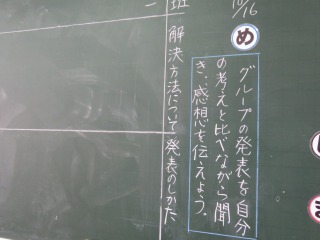 10/16
め
グループの発表を自分
の考えと比べながら聞
き、感想を伝えよう。
解決方法について発表のしかた
班
一
ま